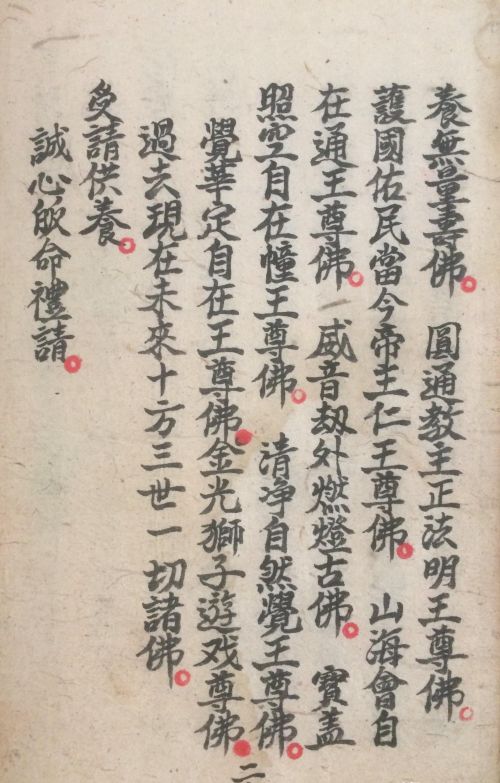 養無量壽佛。 圓通教主正法明王尊佛。
護國佑民當今帝主仁王尊佛。 山海會自
在通王尊佛。 威音劫外燃燈古佛。 寶盖
照空自在幢王尊佛。 清净自然覺王尊佛。
覺華定自在王尊佛。金光獅子遊戏尊佛。
過去現在未來十方三世一切諸佛。
受請供養。
誠心皈命禮請。
二